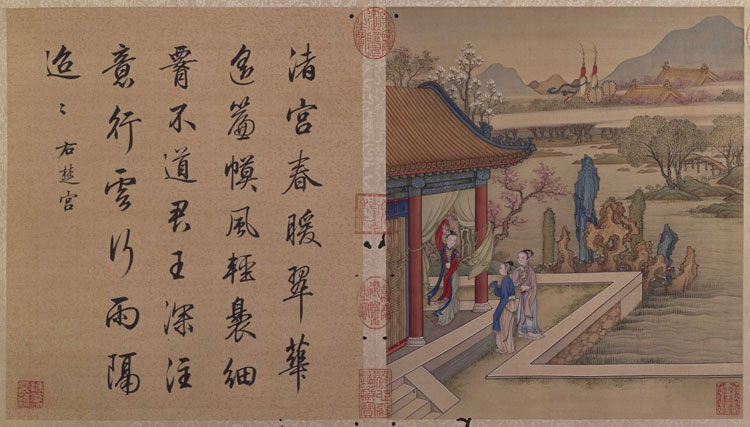 渚宮春暖翠華
遙簾幙風輕裊細
腰不道君王深注
意行雲行雨隔
迢〻
右楚宮